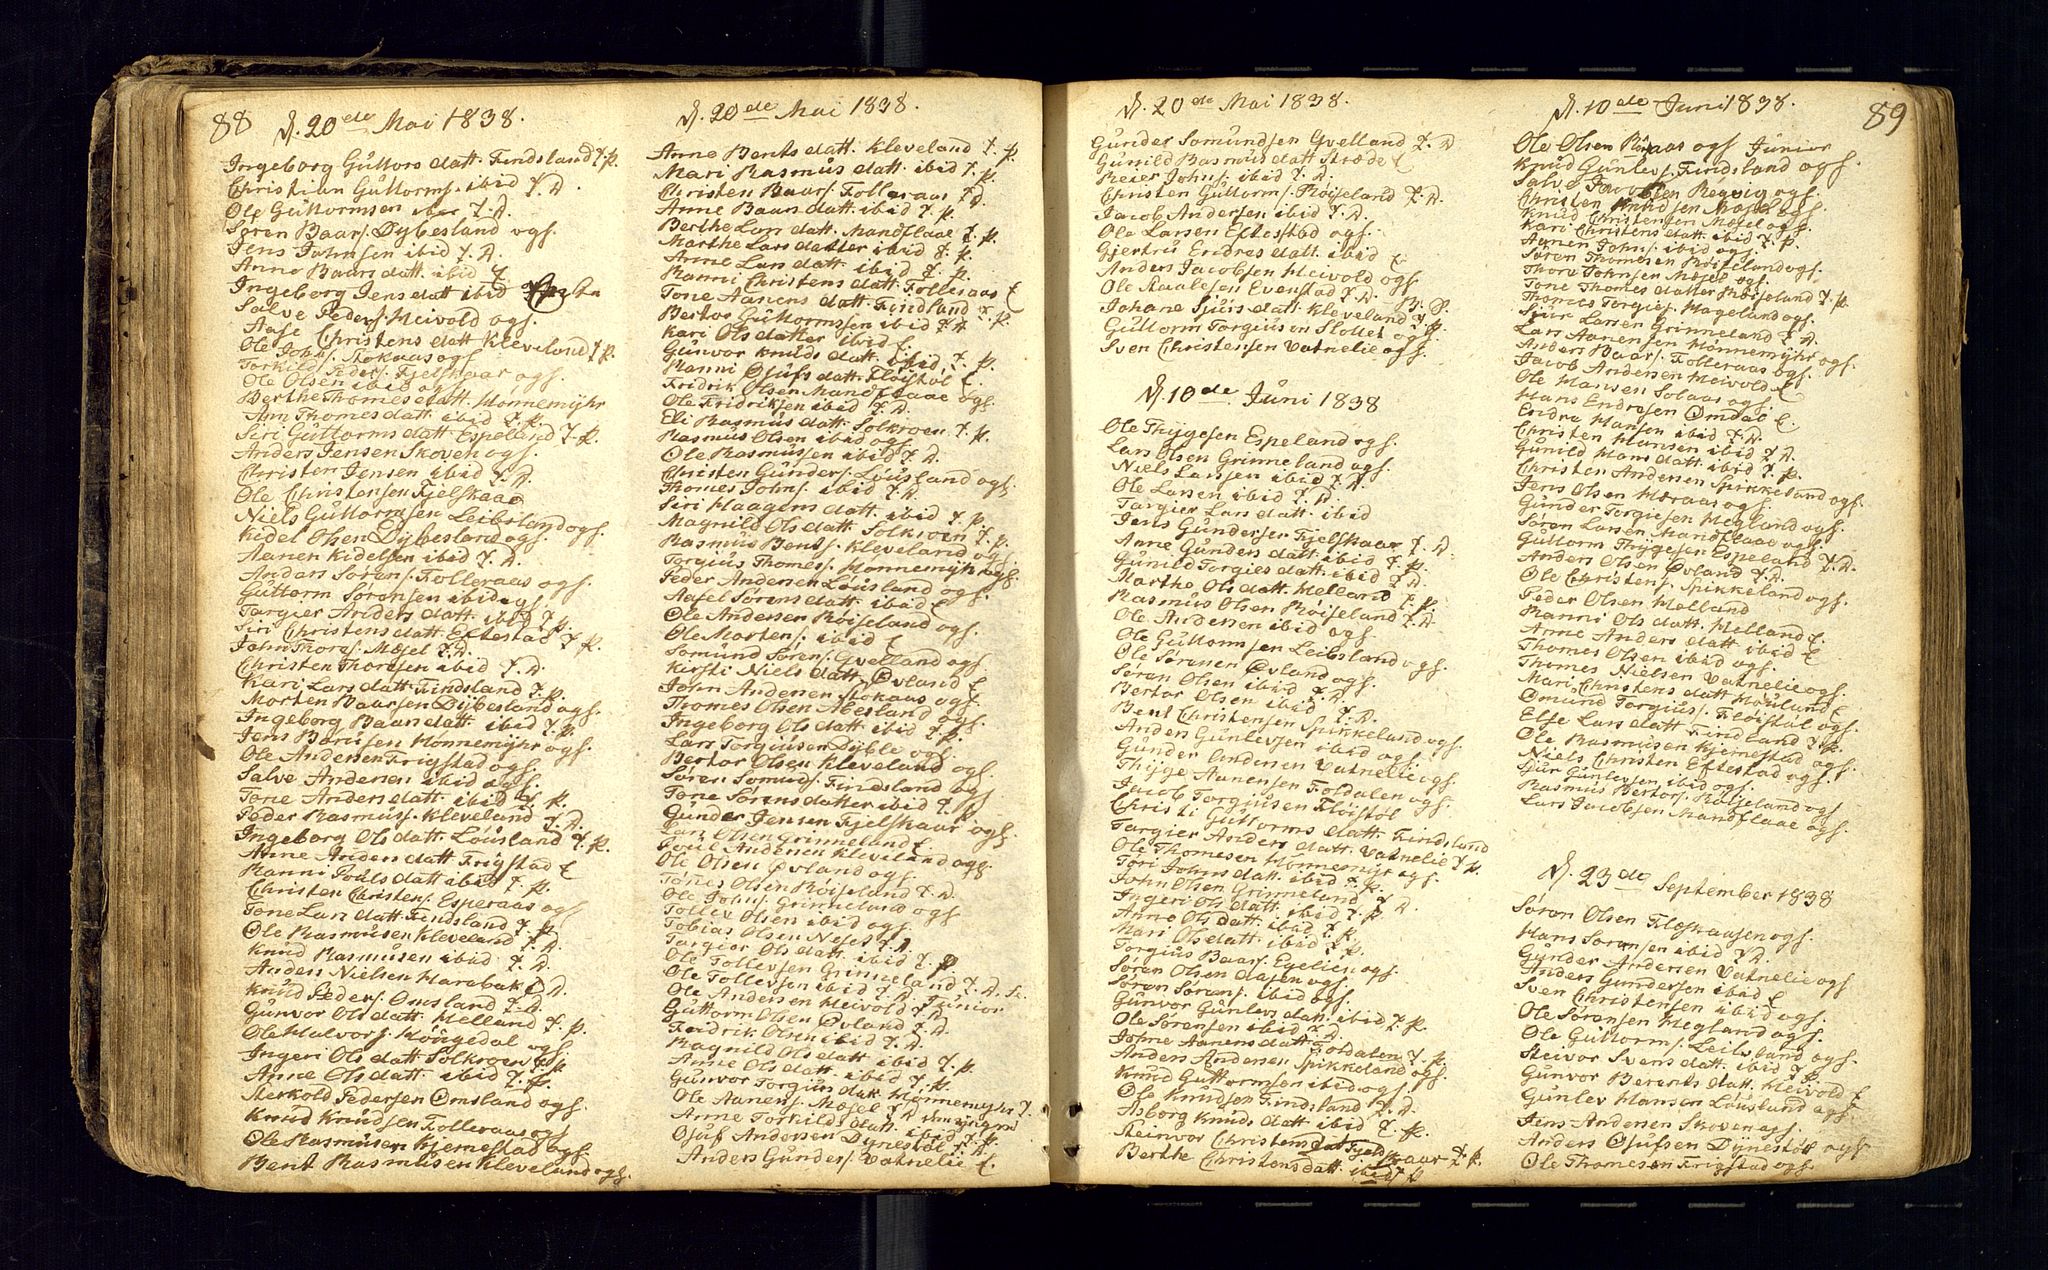 88
d. 20de Mai 1838.
Ingeborg Guttorsdatt. Findsland T. P.
Christian Guttorms. ibid T. D.
Ole Guttormsen ibid T. D.
Søren Baars. Dybesland ogs.
Jens Johnsen ibid T. D.
Anne Baarsdatt. ibid
Ingeborg Jensdatt ibid
Salve Peders. Heivold ogs.
Aase Christensdatt Kleveland T. P.
Ole Johns. Stokaas ogs.
Torkild Peders. Fjelskaar ogs.
Ole Olsen ibid ogs.
Berthe Thomesdatt. Honnemyhr
Ann Thomesdatt ibid T. P.
Siri Guttormsdatt Espeland T. P.
Anders Jensen Skoven ogs.
Christen Jensen ibid T. D.
Ole Christensen Fjelskaar
Niels Guttormsen Leibsland ogs.
Kidel Olsen Dybesland ogs.
Aanen Kidelsen ibid T. D.
Anders Sørens. Folleraas ogs.
Guttorm Sørensen ibid ogs.
Targier Andersdatt. ibid T. P.
Siri Christensdatt Eftestad T. P.
John Thores. Mosel T. D.
Christen Thoresen ibid T. D.
Kari Larsdatt. Findsland T. P.
Morten Baarsen Dybesland ogs.
Ingeborg Baarsdatt ibid T. P.
Jens Børusen Honnemyhr ogs.
Ole Andersen Frigstad ogs.
Salve Andersen ibid ogs.
Tone Andersdatt. ibid T. P.
Peder Rasmus. Kleveland T. D.
Ingeborg Olsdatt. Løusland T. P.
Anne Andersdatt Frigstad E
Ranni Poulsdatt ibid T. P.
Christen Christens. Esperaas ogs
Tone Larsdatt Findsland T. P.
Ole Rasmusen Kleveland T. D.
Knud Rasmusen ibid T. D.
Anders Nielsen Harebak T. D.
Knud Peders. Omsland T. D.
Gunvor Olsdatt. Helland T. P.
Ole Halvors. Høngedal ogs
Ingeri Olsdatt Solkroen T. P.
Anne Olsdatt ibid T. P.
Sterkold Pedersen Omsland ogs.
Knud Knudsen Folleraas ogs.
Ole Rasmusen Kjernestad ogs.
Bent Rasmusen Kleveland ogs.
d. 20de Mai 1838
Anne Bentsdatt. Kleveland T. P.
Mari Rasmusdatt. ibid T. P.
Christen Baars. Folleraas T. D
Anne Baarsdatt. ibid T. P.
Berthe Larsdatt. Mandflaae T. P.
Marthe Larsdatter ibid T. P.
Anne Larsdatt. ibid T. P.
Ranni Christensdatt. Folleraas E
Tone Aanensdatt. Findsland T. P.
Bertor Guttormsen ibid T. D.
Kari Olsdatter ibid E
Gunvor Knudsdatt. ibid T. P.
Ranni Osufsdatt. Fløistøl E.
Fridrik Olsen Mandflaae ogs.
Ole Fridriksen ibid T. D.
Eli Rasmusdatt. Solkroen T. P.
Rasmus Olsen ibid ogs.
Ole Rasmussen ibid T. D.
Christen Gunders. Løusland ogs
Thomes Johns. ibid T. D.
Siri Haagensdatt ibid T. P.
Magnild Olsdatt Solkroen T. P.
Rasmus Bents. Kleveland ogs
Torgius Thomes. Honnemyhr ogs
Peder Andersen Løusland ogs.
Aasel Sørensdatt. ibid E
Ole Andersen Røiseland ogs.
Ole Mortens. ibid E
Somund Sørens. Gvelland ogs.
Kirsti Nielsdatt. Øvland E
John Andersen Stokaas ogs.
Thomes Olsen Abesland ogs.
Ingeborg Olsdatt ibid T. P.
Lars Torgiusen Dyble ogs.
Bertor Olsen Kleveland ogs.
Søren Somund. Findsland ogs
Tone Sørensdatter ibid T. P.
Gunder Jensen Fjelskaar ogs.
Lars Olsen Grinneland E
Poul Andersen Kleveland ogs.
Ole Olsen Øvland ogs.
Tønes Olsen Røiseland T. D.
Ole Johns. Grinneland ogs
Tollev Olsen ibid ogs.
Tobias Olsen Neset T. D.
Targier Olsdatt. ibid T. P
Ole Tollevsen Grinneland T. D. Se.
Ole Tollevsen ibid T. D. Junior
Ole Andersen Heivold T. D.
Guttorm Olsen Øvland T. D.
Fridrik Olsen ibid T. D.
Ragnild Olsdatt ibid T. P.
Anne Olsdatt. ibid T. P.
Gunvor Torgiusdatt. Honnemyhr T.
Ole Aanens. Mosel T. D
Anne Torkildsdatt. ibid T. P.
Osuf Andersen Dynestøl T. D.
Anders Gunders. Vatnelie E.
d. 20de Mai 1838.
Gunder Somundsen Gvelland T. D
Gunild Rasmusdatt Stræde E
Reier Johns. ibid T. D.
Christen Guttorm. Røiseland T. D.
Jacob Andersen ibid T. D.
Ole Larsen Eftestad ogs.
Gjertru Endresdatt. ibid E
Anders Jacobsen Heivold ogs
Ole Raalesen Evenstad T. D.
Johane Sjursdatt. Kleveland T. P.
Guttorm Torgiusen Slottet ogs.
Sven Christensen Vatnelie ogs.
d. 10de Juni 1838
Ole Thygesen Espeland ogs.
Lars Olsen Grinneland ogs.
Niels Larssen ibid T. D.
Ole Larsen ibid T. D.
Targier Larsdatt. ibid
Jens Gundersen Fjelskaar T. D.
Anne Gundersdatt. ibid T. P.
Gunild Torgiesdatt. ibid T. P.
Marthe Olsdatt. Helland T. P.
Rasmus Olsen Røiseland T. D.
Ole Andersen ibid ogs.
Ole Guttormsen Leibsland ogs.
Ole Sørensen Øvland ogs.
Søren Olsen ibid T. D.
Bertor Olsen ibid T. D.
Bent Christensen Spikkeland ogs.
Anders Gunlevsen ibid ogs.
Gunder Andersen Vatnelie ogs
Thyge Aanensen Foldalen ogs.
Jacob Torguisen Fløistøl
Christi Guttormsdatt. Findsland
Targier Andersdatt. Vatnelie T. P.
Ole Thomesen Honnemyr ogs.
Tori Johnsdatt. ibid T. P.
John Olsen Grinneland T. D.
Ingeri Olsdatt. ibid T. P.
Anne Olsdatt. ibid T. P.
Mari Olsdatt. ibid T. P.
Torgius Baars. Egelien ogs
Søren Olsen Dalen ogs.
Søren Sørens. ibid ogs.
Gunvor Gunlevsdatt. ibid T. P.
Ole Sørensen ibid T. D.
Johne Aanensdatt. Foldalen T. P.
Anders Andersen Spikkeland ogs.
Knud Guttormsen ibid ogs.
Ole Knudsen Findsland T. D.
Asborg Knudsdatt. ibid T. P.
Steinvor Christensdat Fjelskaar T. P.
Berthe Christensdatt. ibid T. P
89
d. 10de Juni 1838.
Ole Olsen Raas ogs Junior
Knud Gunlevs. Findsland ogs.
Salve Jacobsen Regevig ogs.
Christen Knudsen Mosel ogs.
Knud Christensen Mosel ogs.
Kari Christensdatt. ibid T. P.
Aanen Johns. ibid ogs
Søren Thomesen Røiseland ogs.
Thore Johnsen Mosel ogs.
Tone Thomesdatter Røiseland T. P.
Thomes Torgies. Hageland ogs.
Sjur Larsen Grinneland T. D.
Lars Aanensen Honnemyhr ogs.
Anders Baars. Folleraas ogs.
Jacob Andersen Heivold E
Ole Hansen Solaas ogs.
Hans Endresen Omdal E.
Endre Hansen ibid T. D.
Christen Hansen ibid T. D.
Gunild Hansdatt. ibid T. P.
Christen Andersen Spikkeland ogs.
Jens Olsen Høraas ogs.
Gunder Torgiesen Hegland ogs.
Søren Larsen Mandflaae ogs.
Guttorm Thygesen Espeland T. D.
Anders Olsen Øvland T. D.
Ole Christens. Spikkeland ogs.
Peder Olsen Helland
Ranni Olsdatt. Helland E
Anne Andersdatt. ibid E
Thomes Olsen ibid ogs.
Thomes Nielsen Vatnelie ogs.
Mari Christensdatt Høuland E
Omund Torgius. Fløistøl ogs.
Else Larsdatt Findsland T. P.
Ole Rasmusen Kjernestad ogs.
Niels Christen Eftestad ogs.
Sjur Gunlevsen ibid ogs.
Rasmus Bertors. Røiseland ogs
Lars Jacobsen Mandflaae ogs.
d. 23de September 1838
Søren Olsen Kleskaasen ogs.
Hans Sørensen ibid T. D.
Gunder Andersen Vatnelie ogs
Anders Gundersen ibid E
Sven Christensen ibid ogs.
Ole Sørensen Hegland ogs.
Ole Guttorm. Leibsland ogs.
Steivor Svensdatt. ibid T. P.
Gunvor Berentsdatt. Heivold E
Gunlev Hansen Løusland ogs.
Jens Andersen Skoven ogs.
Anders Osufsen Dynestøl ogs
Ole Thomesen Frigstad ogs.